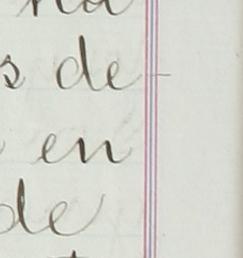 s de
en
de